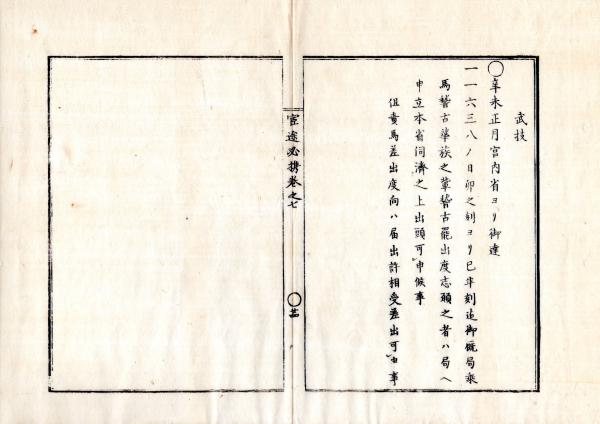 武技
○辛未正月宮内省ヨリ御達
一一六三八ノ日卯之刻ヨリ巳半刻迄御厩局乗
馬稽古華族之輩稽古罷出度志願之者ハ局ヘ
申立本省伺済之上出頭可申候事
但貴馬差出度向ハ届出許相受差出可申事
宦途必携巻之七
○廿